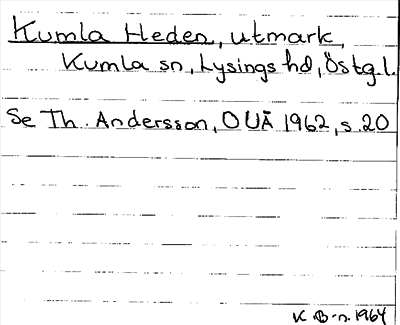 Kumla Heden, utmark,
Kumla sn, Lysings hd, Östg.l.
Se Th. Andersson, OUÅ 1962, s.20
K B-n. 1964